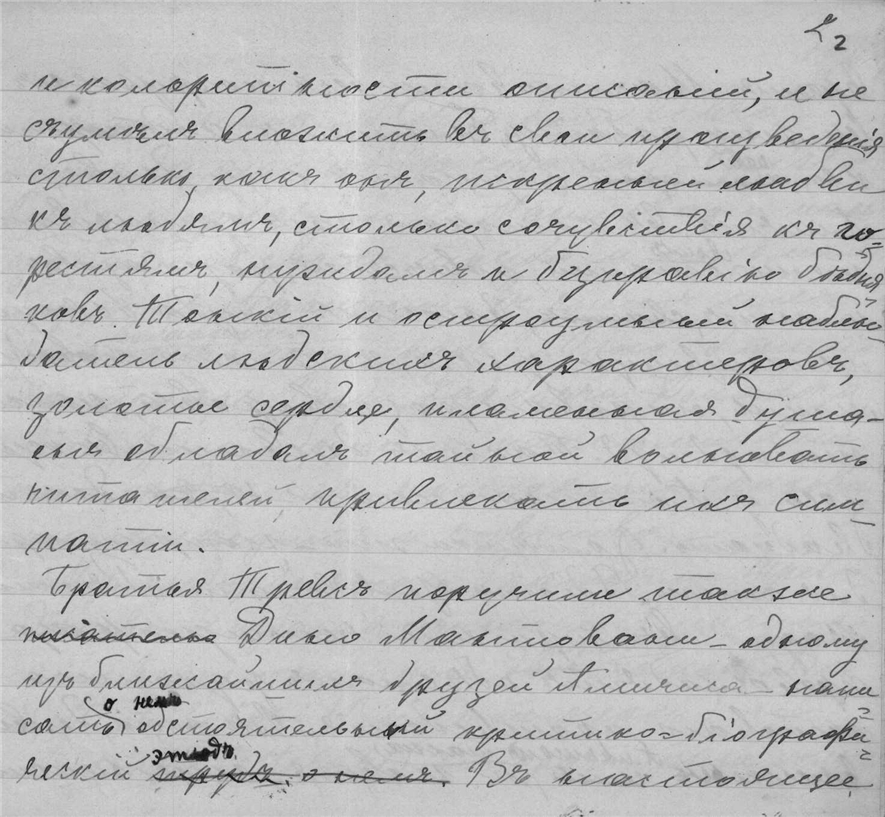 2
и колоритности описаній, и не
съумѣлъ вложить въ свои произведенія
столько, какъ онъ, искренней любви
къ людямъ, столько сочувствія къ го-
рестямъ, нуждамъ и безправію бѣдня-
ковъ. Тонкій и остроумный наблю-
датель людскихъ характеровъ,
золотое сердце, пламенная душа -
онъ обладалъ тайной волновать
читателей, привлекать ихъ сим-
патіи.
Братья Тревсъ поручили также
писателю Дино Мантовани - одному
изъ ближайшихъ друзей Амичиса - напи-
о немъ
сать обстоятельный критико-біографи-
этюдъ.
ческій трудъ о немъ. Въ настоящее